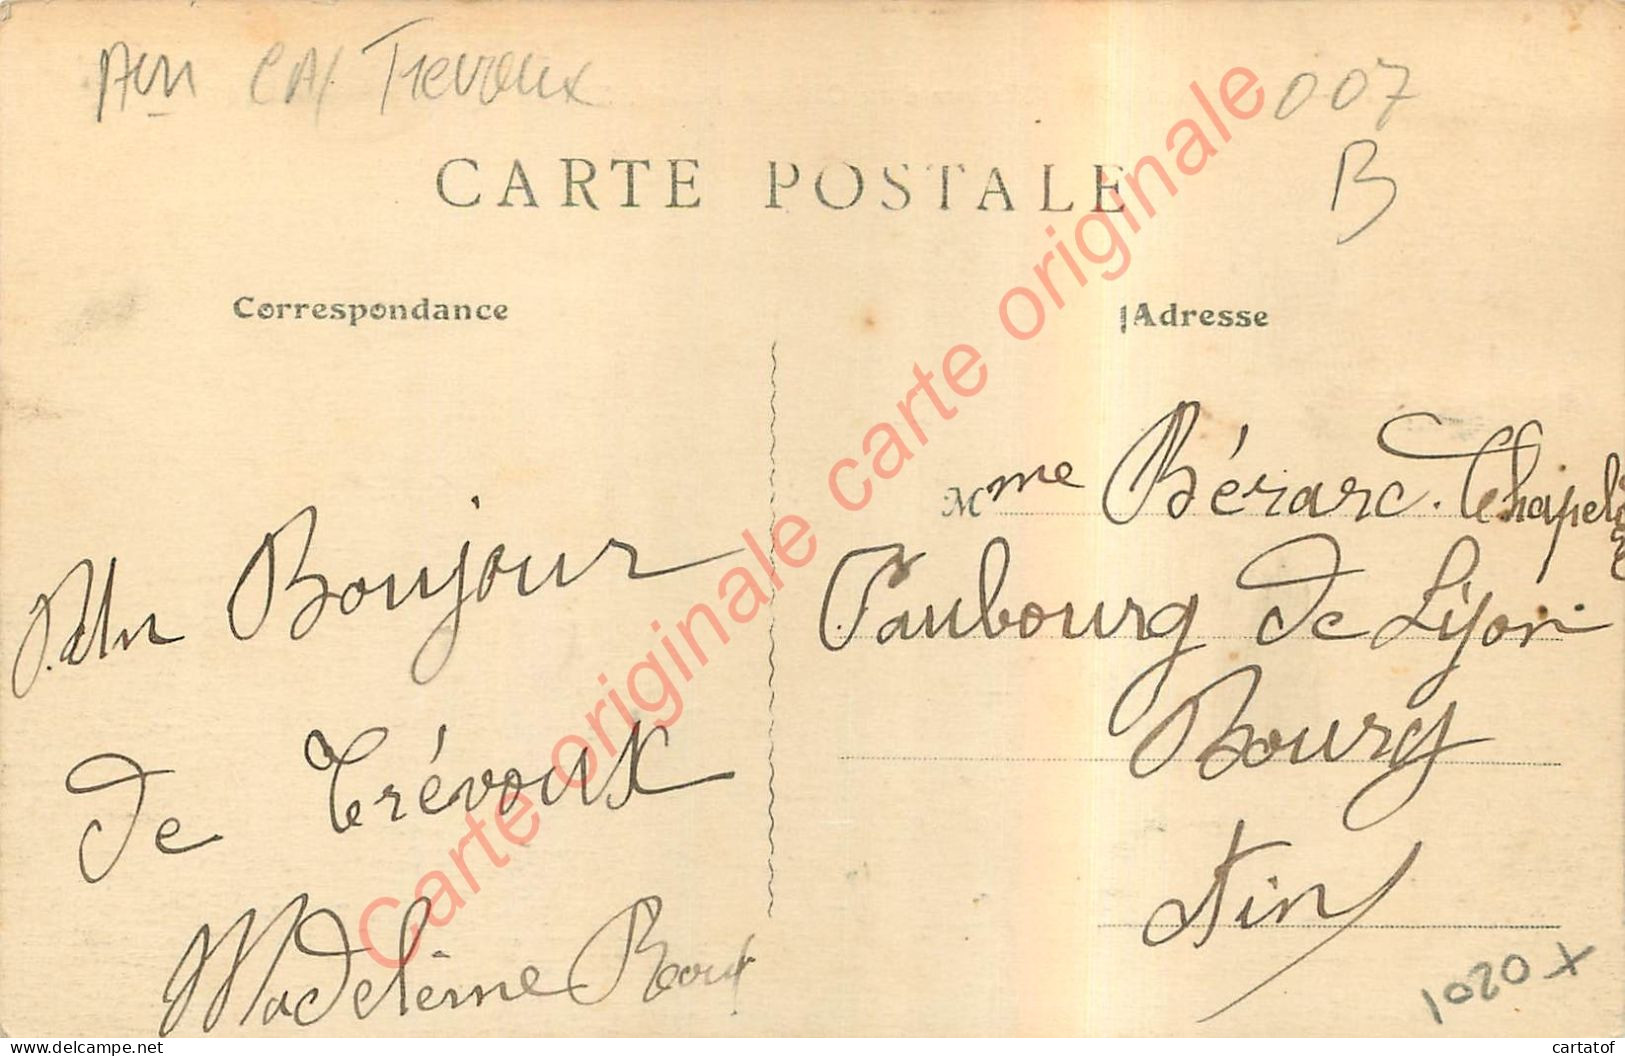 Trevoux
007
B
CARTE POSTALE
Correspondance
Adresse
Un Bonjour
de Trévoux
Madeleine Roux
Mme Bérard. Chapel
Faubourg de Lyon
Bourg
Ain
1020 x
Carte originale carte originale carte originale
www.delcampe.net
cartatof